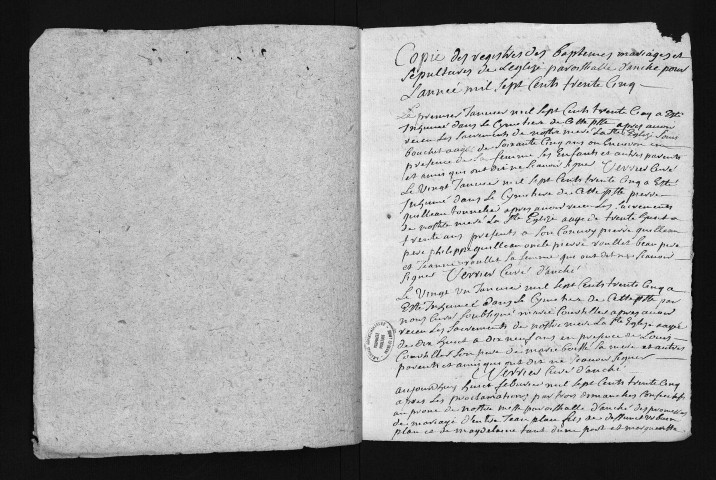 Copie des registres des baptemes mariages et
sépultures de L'eglize paroissialle d'anché pour
L'année mil sept Cents trente Cinq
Le premier Janvier mil sept Cents trente Cinq a Esté
Inhumé dans le Cymetiere de Cette psse apres avoir
receu Les Sacrements de nostre mere La Ste Eglize Louis
bouchet aagé de Soixante Cinq ans ou Environ en
presence de sa femme ses Enfants et autres parents
et amis qui ont dit ne Scavoir signer Verrier Curé
Le Vingt Janvier mil sept Cents trente Cinq a Esté
Inhumé dans Le Cymetiere de Cette psse pierre
quilleau tonnelier apres avoir receu Les Sacrements
de nostre mere La Ste Eglize aagé de trente huit a
trente ans presents a Son Convoy pierre quilleau
pere philippe quilleau oncle pierre roullet beau pere
et Jeanne roullet sa femme qui ont dit ne Scavoir
signer Verrier Curé d'anché
Le Vingt un Janvier mil sept Cents trente Cinq a
Esté Inhumée dans Le Cymetiere de Cette psse par
nous Curé soubsigné marie Coustilles apres avoir
receu Les Sacrements de nostre mere La Ste Eglize aagée
de dix huit a dix neuf ans en presence de Louis
Coustilles Son pere de marie sa mere et autres
parents et amis qui ont dit ne Scavoir signer
Verrier Curé d'anché
aujourdhuy huict febvrier mil sept Cents trente Cinq
apres Les proclamations par trois dimanches Consecutifs
au prone de nostre messe paroissialle d'anché des promesses
de mariage d'entre Jean plan fils de deffunct
plan et de magdelaine d'une part et marguerite